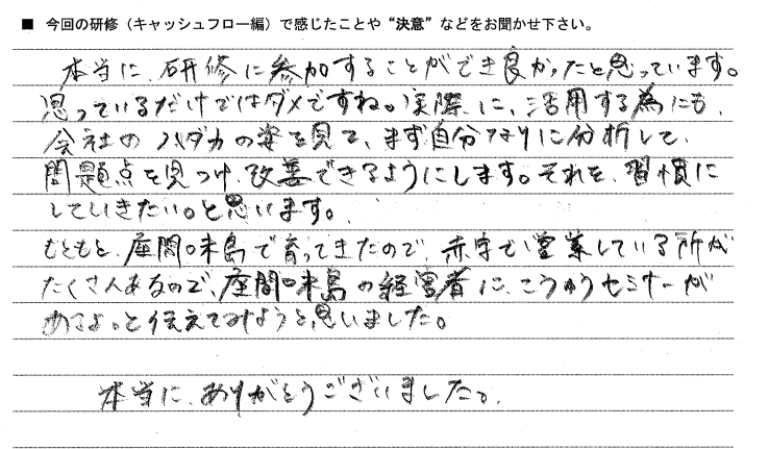 ■ 今回の研修（キャッシュフロー編）で感じたことや“決意”などをお聞かせ下さい。
本当に、研修に参加することができ良かったと思っています。
思っているだけではダメですね。実際に、活用する為にも、
会社のハダカの姿を見て、まず自分なりに分析して、
問題点を見つけ、改善できるようにします。それを、習慣に
していきたい。と思います。
もともと、座間味島で育ってきたので、赤字で営業している所が
たくさんあるので、座間味島の経営者に、こうゆうセミナーが
あるよ。と伝えてみようと思いました。
本当に、ありがとうございました。